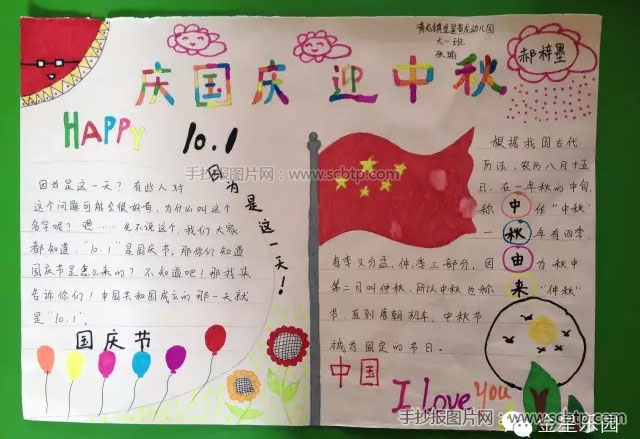 大一班
郝梓墨
庆国庆 迎中秋
HAPPY 10.1
因为是这一天!
手抄报图片网 - www.scbtp.com
因为是这一天？有些人对
这个问题可能会很好奇，为什么叫这个
名字呢？嗯……先不说这个，我们大家
都知道，“10.1”是国庆节。那你们知道
国庆节是怎么来的？不知道吧！那我来
告诉你们！中国共和国成立的那一天就
是“10.1”。
国庆节
根据我国古代
历法，农历八月十五
日，在一年秋的中旬，
称中作“中秋”
一秋年有四季，
每季又分孟、仲、季三部分，因由为秋中
第二月叫仲秋，所以中秋也称来“仲秋”
节，直到唐朝初年，中秋节
成为固定的节日。
中国
I love You
手抄报图片网 - www.scbtp.com
金星乐园